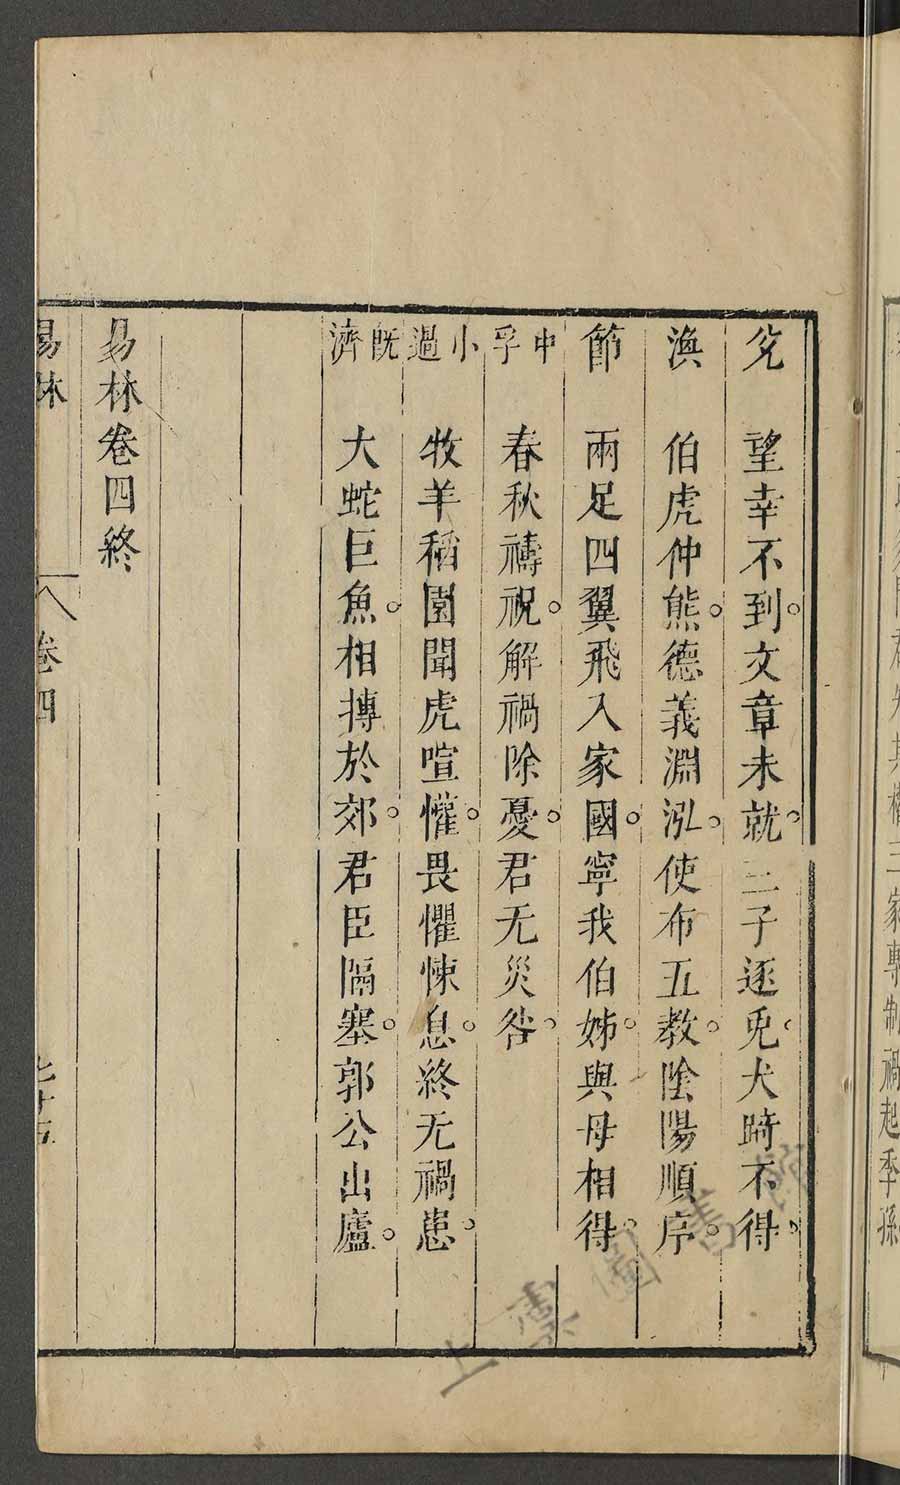 兊　望幸不到文章未就二子逐兎犬踦不得
渙　伯虎仲熊德義淵泓使布五教陰陽順序
節　兩足四翼飛入家國寧我伯姊與母相得
中孚　春秋禱祝解禍除憂君无災咎
小過　牧羊稻園聞虎喧嚾畏懼悚息終无禍患
既濟　大蛇巨魚相摶於郊君臣隔塞郭公出廬
易林卷四終
易林　卷四　七十五